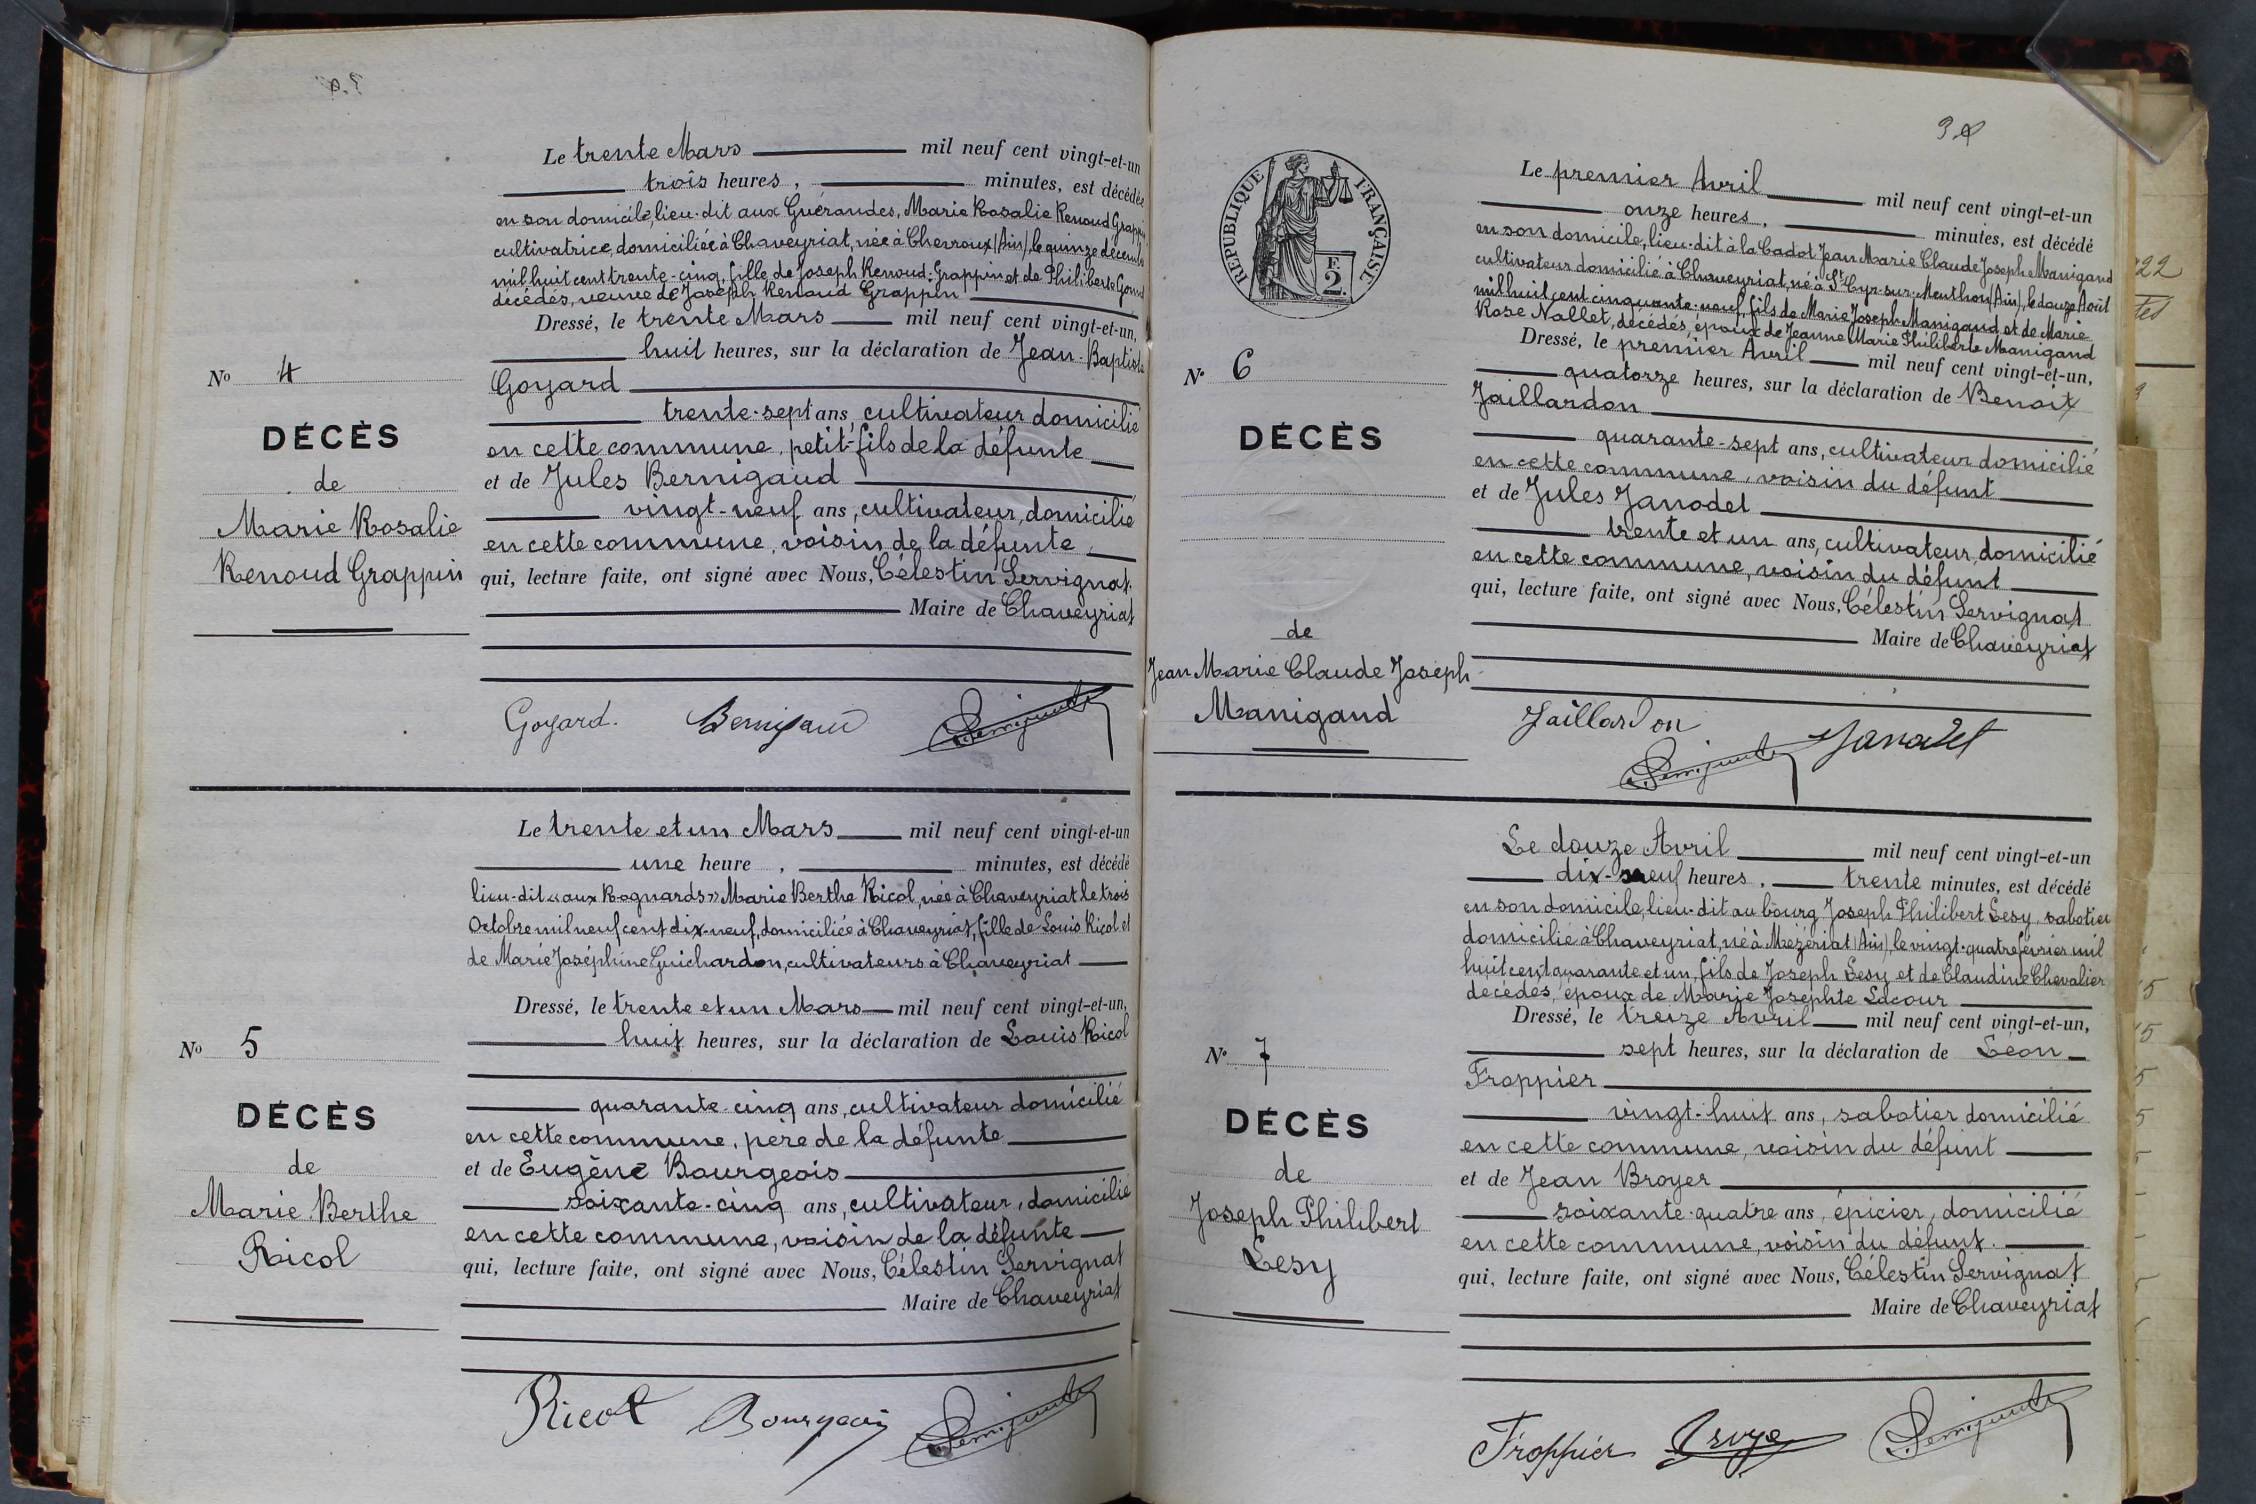 Le trente Mars mil neuf cent vingt-et-un
trois heures, minutes, est décédée
en son domicile, lieu-dit aux Guérandes, Marie Rosalie Renoud Grappin
cultivatrice, domiciliée à Chaveyriat, née à Chevroux (Ain), le quinze décembre
mil huit cent trente-cinq, fille de Joseph Renoud-Grappin et de Philiberte
décédés, veuve de Joseph Renoud Grappin
Dressé, le trente Mars mil neuf cent vingt-et-un,
huit heures, sur la déclaration de Jean-Baptiste
Goyard
trente-sept ans, cultivateur domicilié
en cette commune, petit-fils de la défunte
et de Jules Bernigaud
vingt-neuf ans, cultivateur, domicilié
en cette commune, voisin de la défunte,
qui, lecture faite, ont signé avec Nous, Célestin Servignat
Maire de Chaveyriat
No 4
DÉCÈS
de
Marie Rosalie
Renoud Grappin
Goyard. Bernigaud Servignat
Le trente et un Mars mil neuf cent vingt-et-un
une heure, minutes, est décédé
lieu-dit «aux Rognards» Marie Berthe Ricol, née à Chaveyriat le trois
Octobre mil neuf cent dix-neuf, domiciliée à Chaveyriat, fille de Louis Ricol et
de Marie Joséphine Guichardon, cultivateurs à Chaveyriat
Dressé, le trente et un Mars mil neuf cent vingt-et-un,
huit heures, sur la déclaration de Louis Ricol
quarante-cinq ans, cultivateur domicilié
en cette commune, père de la défunte
et de Eugène Bourgeois
soixante-cinq ans, cultivateur, domicilié
en cette commune, voisin de la défunte
qui, lecture faite, ont signé avec Nous, Célestin Servignat
Maire de Chaveyriat
No 5
DÉCÈS
de
Marie Berthe
Ricol
Ricol Bourgeois Servignat
RÉPUBLIQUE FRANÇAISE
F.
2.
Le premier Avril mil neuf cent vingt-et-un
onze heures, minutes, est décédé
en son domicile, lieu-dit à la Cadot Jean Marie Claude Joseph Manigand
cultivateur domicilié à Chaveyriat, né à St Cyr-sur-Menthon (Ain), le douze Août
mil huit cent cinquante-neuf, fils de Marie Joseph Manigand et de Marie
Rose Nallet, décédés, époux de Jeanne Marie Philiberte Manigand
Dressé, le premier Avril mil neuf cent vingt-et-un,
quatorze heures, sur la déclaration de Benoit
Jaillardon
quarante-sept ans, cultivateur domicilié
en cette commune, voisin du défunt
et de Jules Janodet
trente et un ans, cultivateur, domicilié
en cette commune, voisin du défunt
qui, lecture faite, ont signé avec Nous, Célestin Servignat
Maire de Chaveyriat
N° 6
DÉCÈS
de
Jean Marie Claude Joseph
Manigand
Jaillardon Servignat Janodet
Le douze Avril mil neuf cent vingt-et-un
dix-neuf heures, trente minutes, est décédé
en son domicile, lieu-dit au bourg, Joseph Philibert Lesy, sabotier
domicilié à Chaveyriat, né à Mézériat (Ain), le vingt-quatre février mil
huit cent quarante et un, fils de Joseph Lesy et de Claudine Chevalier
décédés, époux de Marie Josephte Lacour
Dressé, le treize Avril mil neuf cent vingt-et-un,
sept heures, sur la déclaration de Léon
Froppier
vingt-huit ans, sabotier domicilié
en cette commune, voisin du défunt
et de Jean Broyer
soixante-quatre ans, épicier, domicilié
en cette commune, voisin du défunt.
qui, lecture faite, ont signé avec Nous, Célestin Servignat
Maire de Chaveyriat
N° 7
DÉCÈS
de
Joseph Philibert
Lesy
Froppier Broyer Servignat